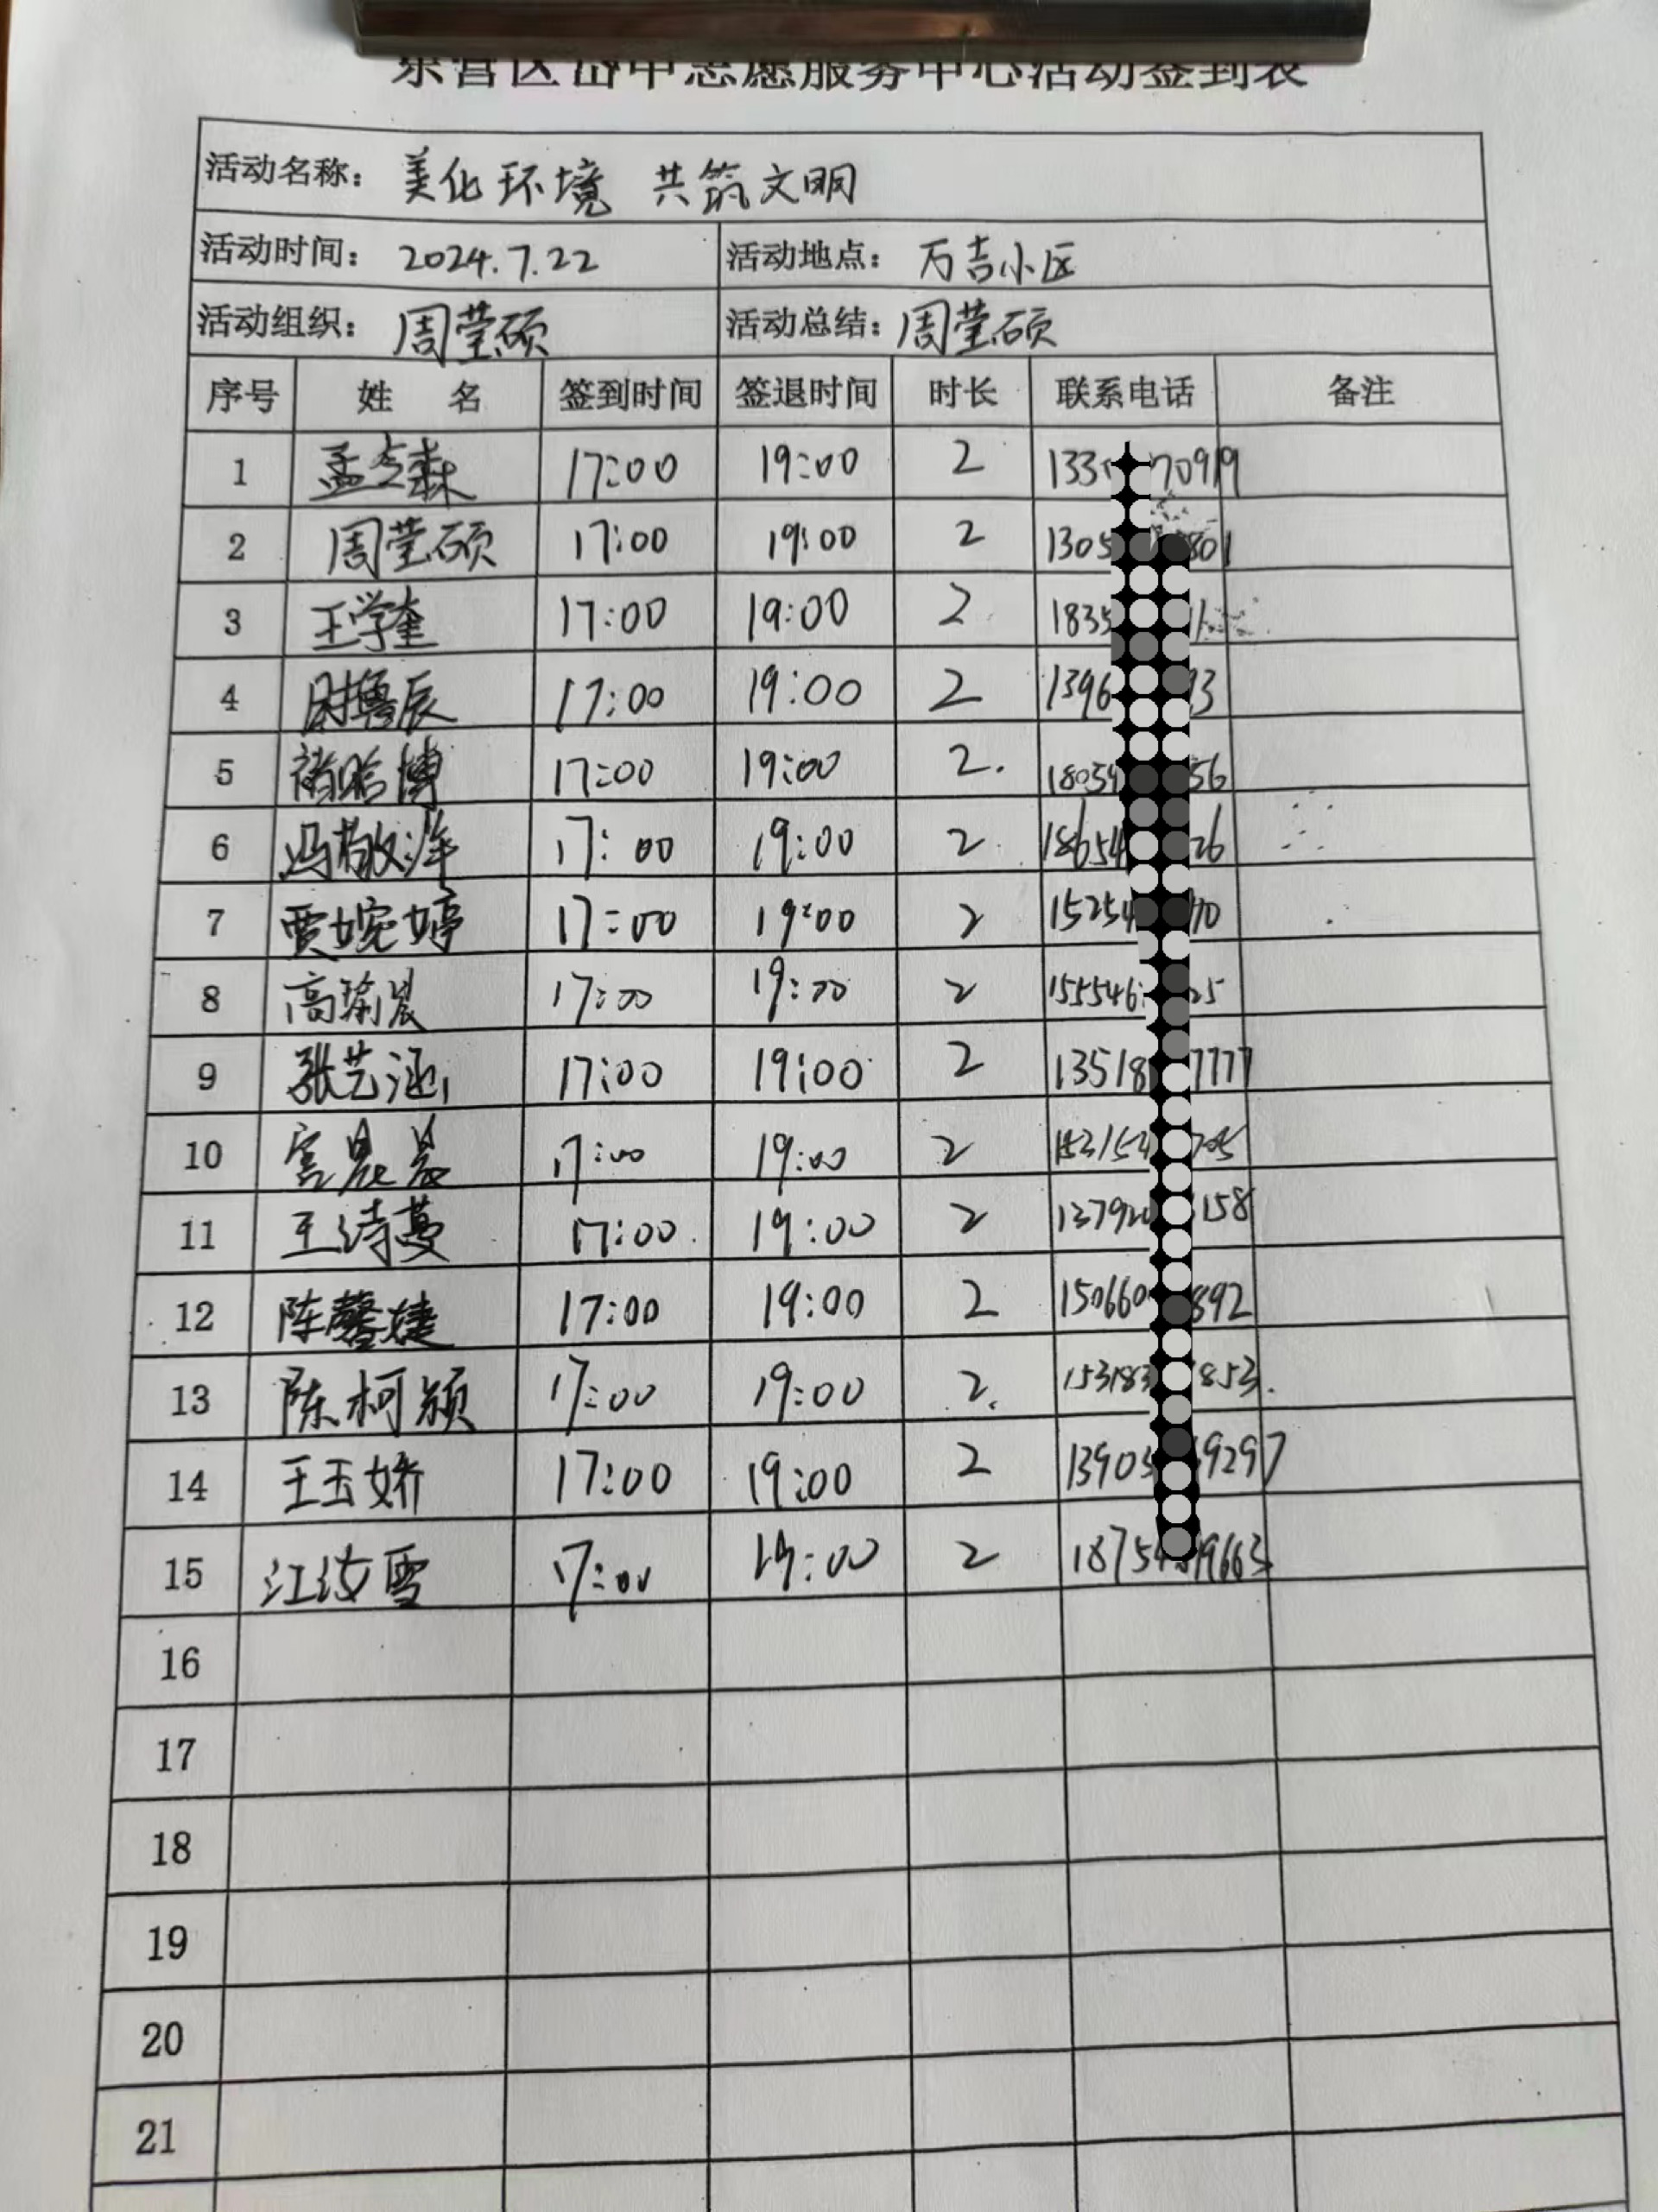 东营区岱中志愿服务中心活动签到表
活动名称: 美化环境 共筑文明
活动时间: 2024.7.22 活动地点: 万吉小区
活动组织: 周莹硕 活动总结: 周莹硕
序号 姓 名 签到时间 签退时间 时长 联系电话 备注
1 17:00 19:00 2 133 70919
2 周莹硕 17:00 19:00 2 1305 801
3 王学奎 17:00 19:00 2 1835 1
4 17:00 19:00 2 1396 93
5 17:00 19:00 2. 18054 56
6 冯敬洋 17:00 19:00 2 18654 26
7 贾婉婷 17:00 19:00 2 15254 70
8 高瑜晨 17:00 19:00 2 155546 25
9 张艺涵 17:00 19:00 2 13518 7777
10 17:00 19:00 2 153154 705
11 王诗蔓 17:00 19:00 2 137920 158
12 陈馨婕 17:00 19:00 2 150660 892
13 陈柯颍 17:00 19:00 2. 153183 853.
14 王玉娇 17:00 19:00 2 13905 9297
15 江汝雪 17:00 19:00 2 18754 9663
16
17
18
19
20
21